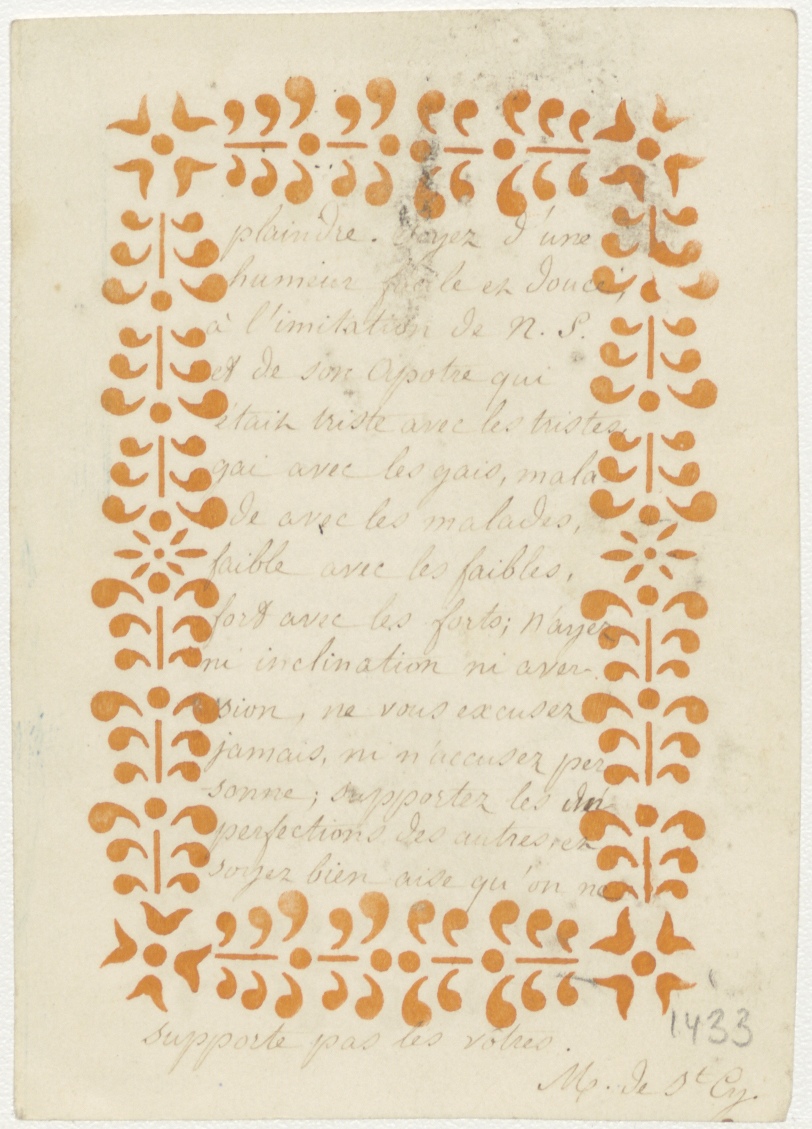 plaindre. Soyez d'une
humeur facile et douce,
à l'imitation de N. S.
et de son Apotre qui
était triste avec les tristes,
gai avec les gais, mala-
de avec les malades,
faible avec les faibles,
fort avec les forts; n'ayez
ni inclination ni aver-
sion, ne vous excusez
jamais, ni n'accusez per
sonne; supportez les im
perfections des autres et
soyez bien aise qu'on ne
supporte pas les vôtres.
M. de St Cy.
1433